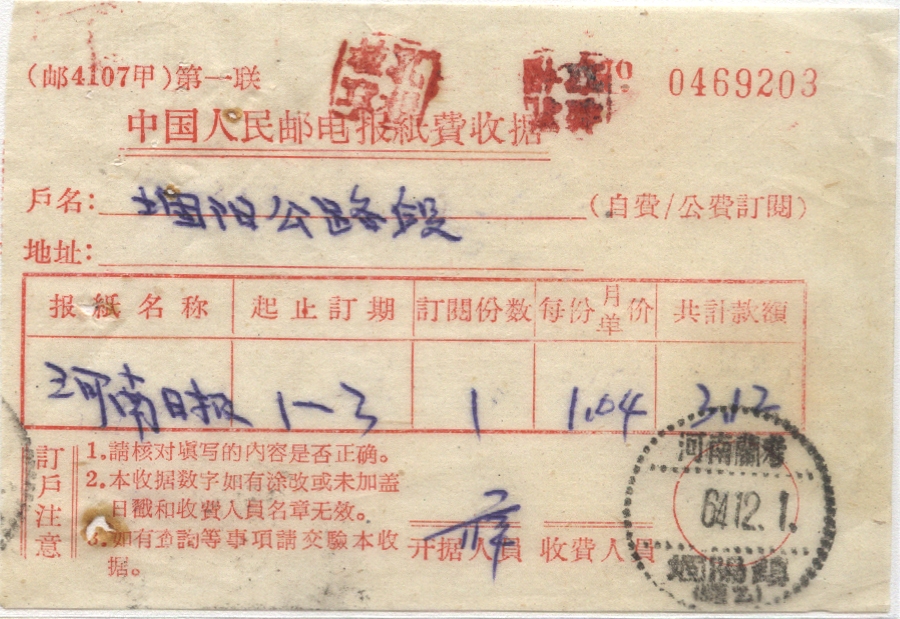 (邮4107甲)第一联
0469203
中国人民邮电报紙費收据
戶名: 堌阳公路段 (自費/公費訂閱)
地址:
报紙名称 起止訂期 訂閱份数 每份月单价 共計款額
河南日报 1—3 1 1.04 3.12
訂戶注意
1.請核对填写的内容是否正确。
2.本收据数字如有涂改或未加盖
日戳和收费人員名章无效。
3.如有查詢等事項請交驗本收
据。
开据人員 收費人員
河南蘭考
64.12.1.
堌陽鎮